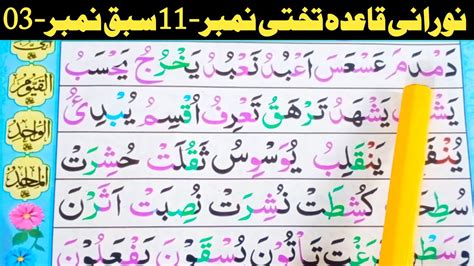 نورانی قاعدہ تختی نمبر-11 سبق نمبر-03
دَمْدَمَ عَسْعَسَ اَعْبُدُ نَعْبُدُ يَخْرُجُ يَحْسَبُ
يَشْهَدُ تَرْهَقُ تَعْرِفُ اُقْسِمُ يُبْدِئُ
يَنْقَلِبُ يُوَسْوِسُ ثَقُلَتْ حُشِرَتْ
كُشِطَتْ نُشِرَتْ نُصِبَتْ اَثَرْنَ
تَأْتُوْنَ يُسْقَوْنَ يَفْعَلُوْنَ
القیوم
الواجد
الماجد